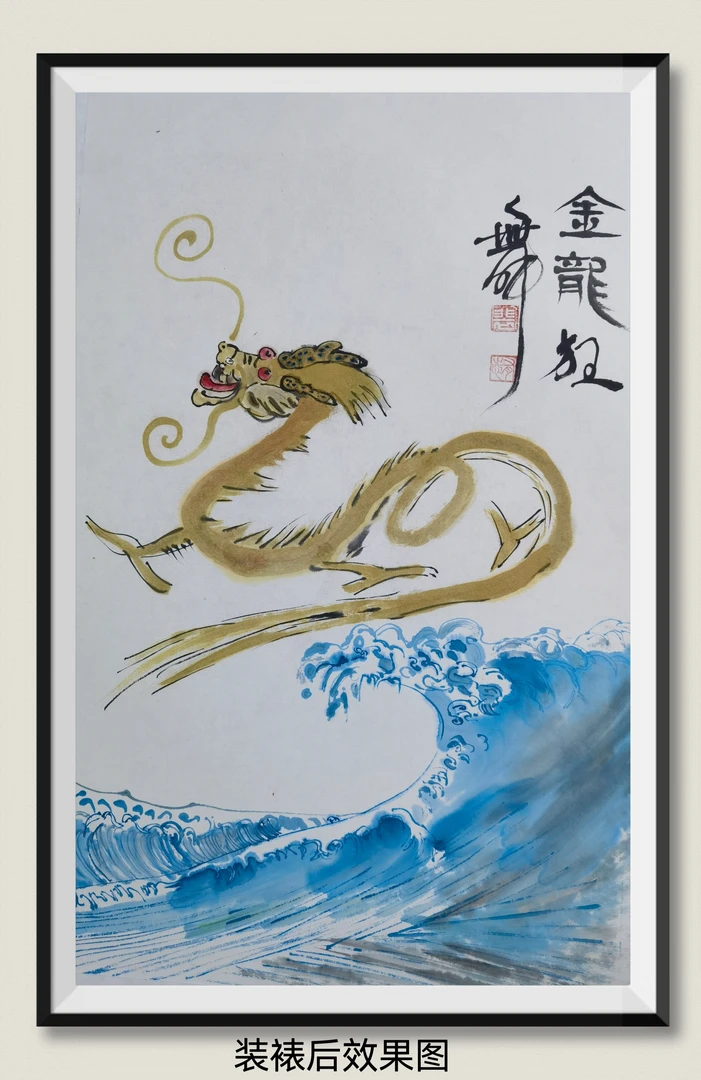 金龍狂
舞
装裱后效果图